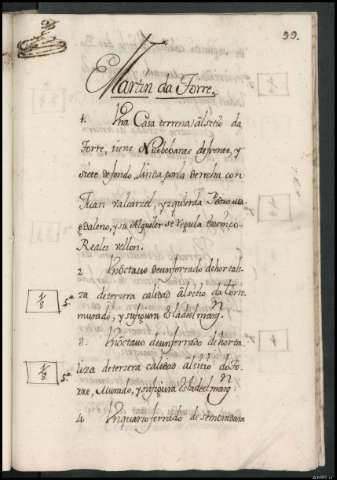 99.
Martin da Torre.
1. Una Casa terrena, al sitio da
Torre, tiene Nuebe baras de frente, y
siete de fondo, Linda por la derecha con
Juan valcarcel, y izquierda Pedro
y su Alquiler se regula en cinco
Reales vellon.
2 Un octavo de un ferrado de hortali
1/8 5.
za de tersera calidad al sitio da torre
murado, y su figura es la del marg.n
3. Un octavo de un ferrado de horta
1/8 5.
liza de tersera calidad al sitio do To
rre, Murado, y su figura es la del marg.n
4 Un quarto ferrado de sembradura